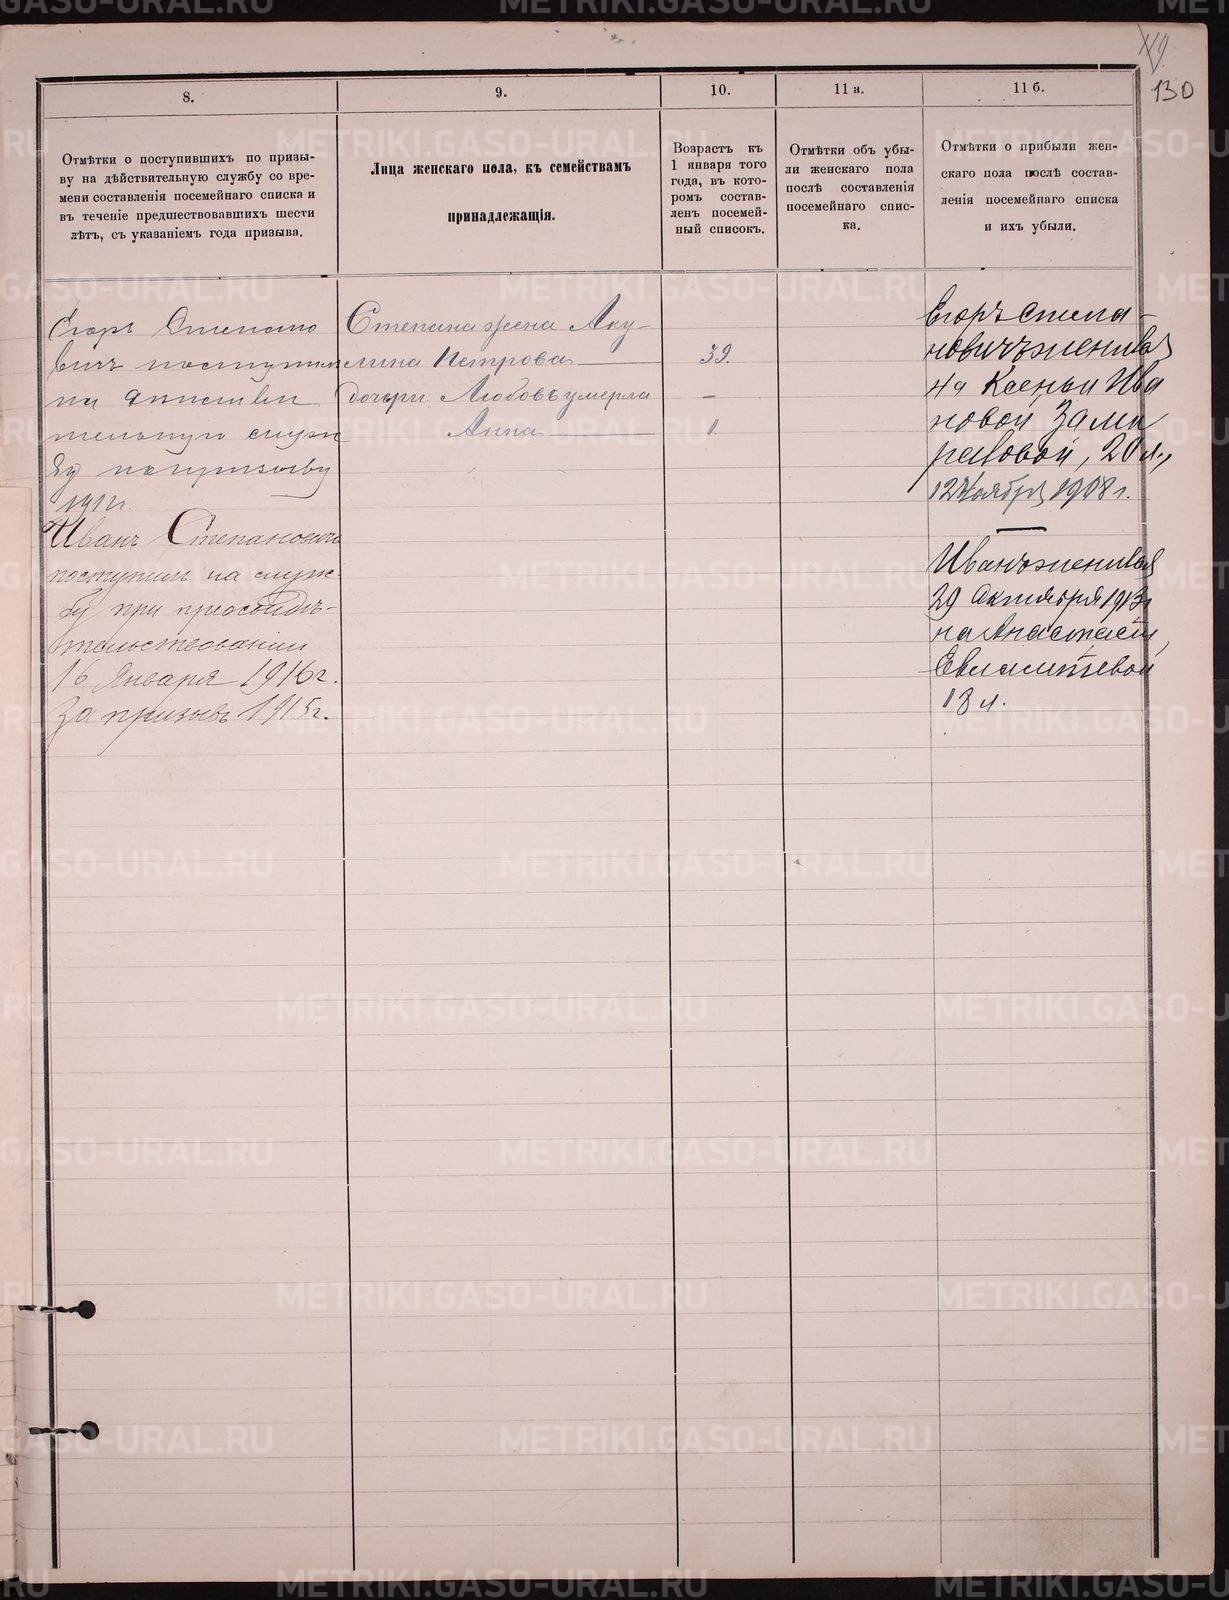 119
130
8.
9.
10.
11 а.
11 б.
Отмѣтки о поступившихъ по призы-
ву на дѣйствительную службу со вре-
мени составленія посемейнаго списка и
въ теченіе предшествовавшихъ шести
лѣтъ, съ указаніемъ года призыва.
Лица женскаго пола, къ семействамъ
принадлежащія.
Возрастъ къ
1 января того
года, въ кото-
ромъ состав-
ленъ посемей-
ный списокъ.
Отмѣтки объ убы-
ли женскаго пола
послѣ составленія
посемейнаго спис-
ка.
Отмѣтки о прибыли жен-
скаго пола послѣ состав-
ленія посемейнаго списка
и ихъ убыли.
Егоръ Степано
вичъ поступил
на действи
тельную служ
бу по призыву
1912 г.
Иванъ Степановичъ
поступилъ на служ-
бу при
16 Января 1916 г.
За призывъ 1915 г.
Степана жена Аку-
лина Петрова
дочери Любовь умерла
Анна
39.
–
1
Егоръ Степа-
новичъ женился
на Ксеньи Ива
новой
20 л.,
12 Ноября 1908 г.
Иванъ женился
29 Октября 1913 г.
на Анастасiи
18 л.
METRIKI.GASO-URAL.RU